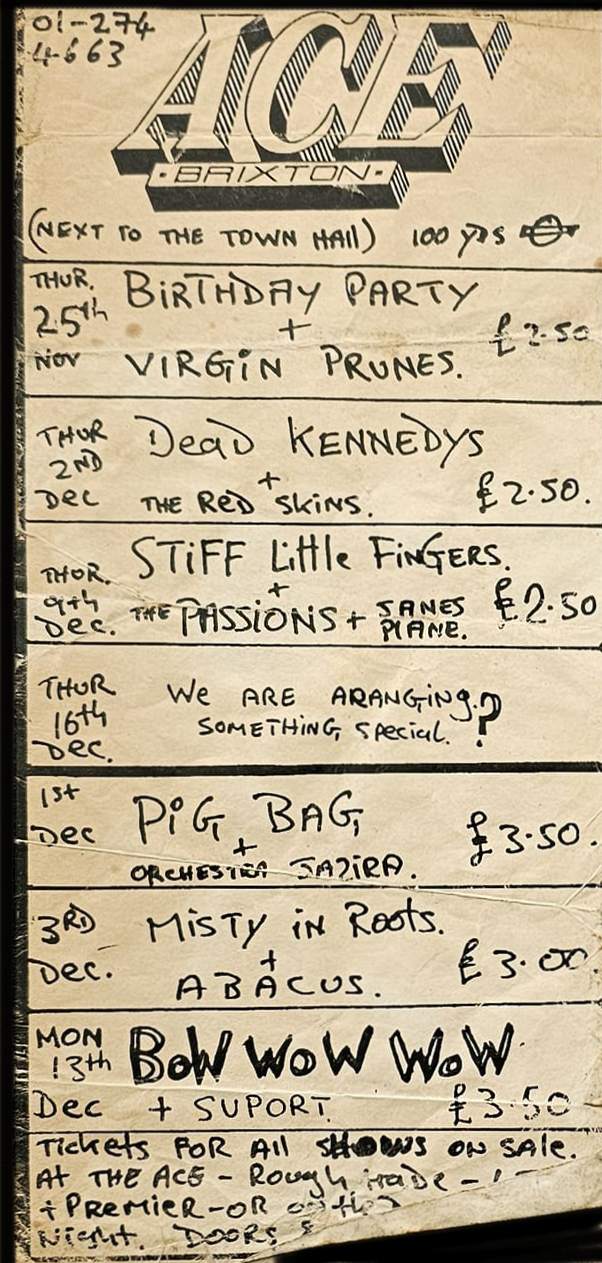 01-274
4663
ACE
·BRIXTON·
(NEXT TO THE TOWN HAll) 100 yds
THUR. 25th NOV
BiRTHDAY PARTY
+
VIRGiN PRUNES.
£2.50
THUR 2ND Dec
Dead KENNEDYS
+
THE Red SkiNS.
£2.50.
THUR. 9th Dec.
STiFF Little FiNGERS.
+
THE PASSiONS + JANES PlANE.
£2.50
THUR 16th Dec.
We ARE ARANGiNg
SOMETHiNG Special.
?
1st Dec
PiG BAG
+
ORCHESTRA JAZiRA.
£3.50.
3RD Dec.
MiSTY iN Roots.
+
ABACUS.
£3.00.
MON 13th Dec
BoW WoW WoW
+ SUPORT
£3.50
TickETS FOR All SHOWS ON SAle.
AT THE ACE - Rough trade -
+ PREMiER - OR on the
Night. DOORS